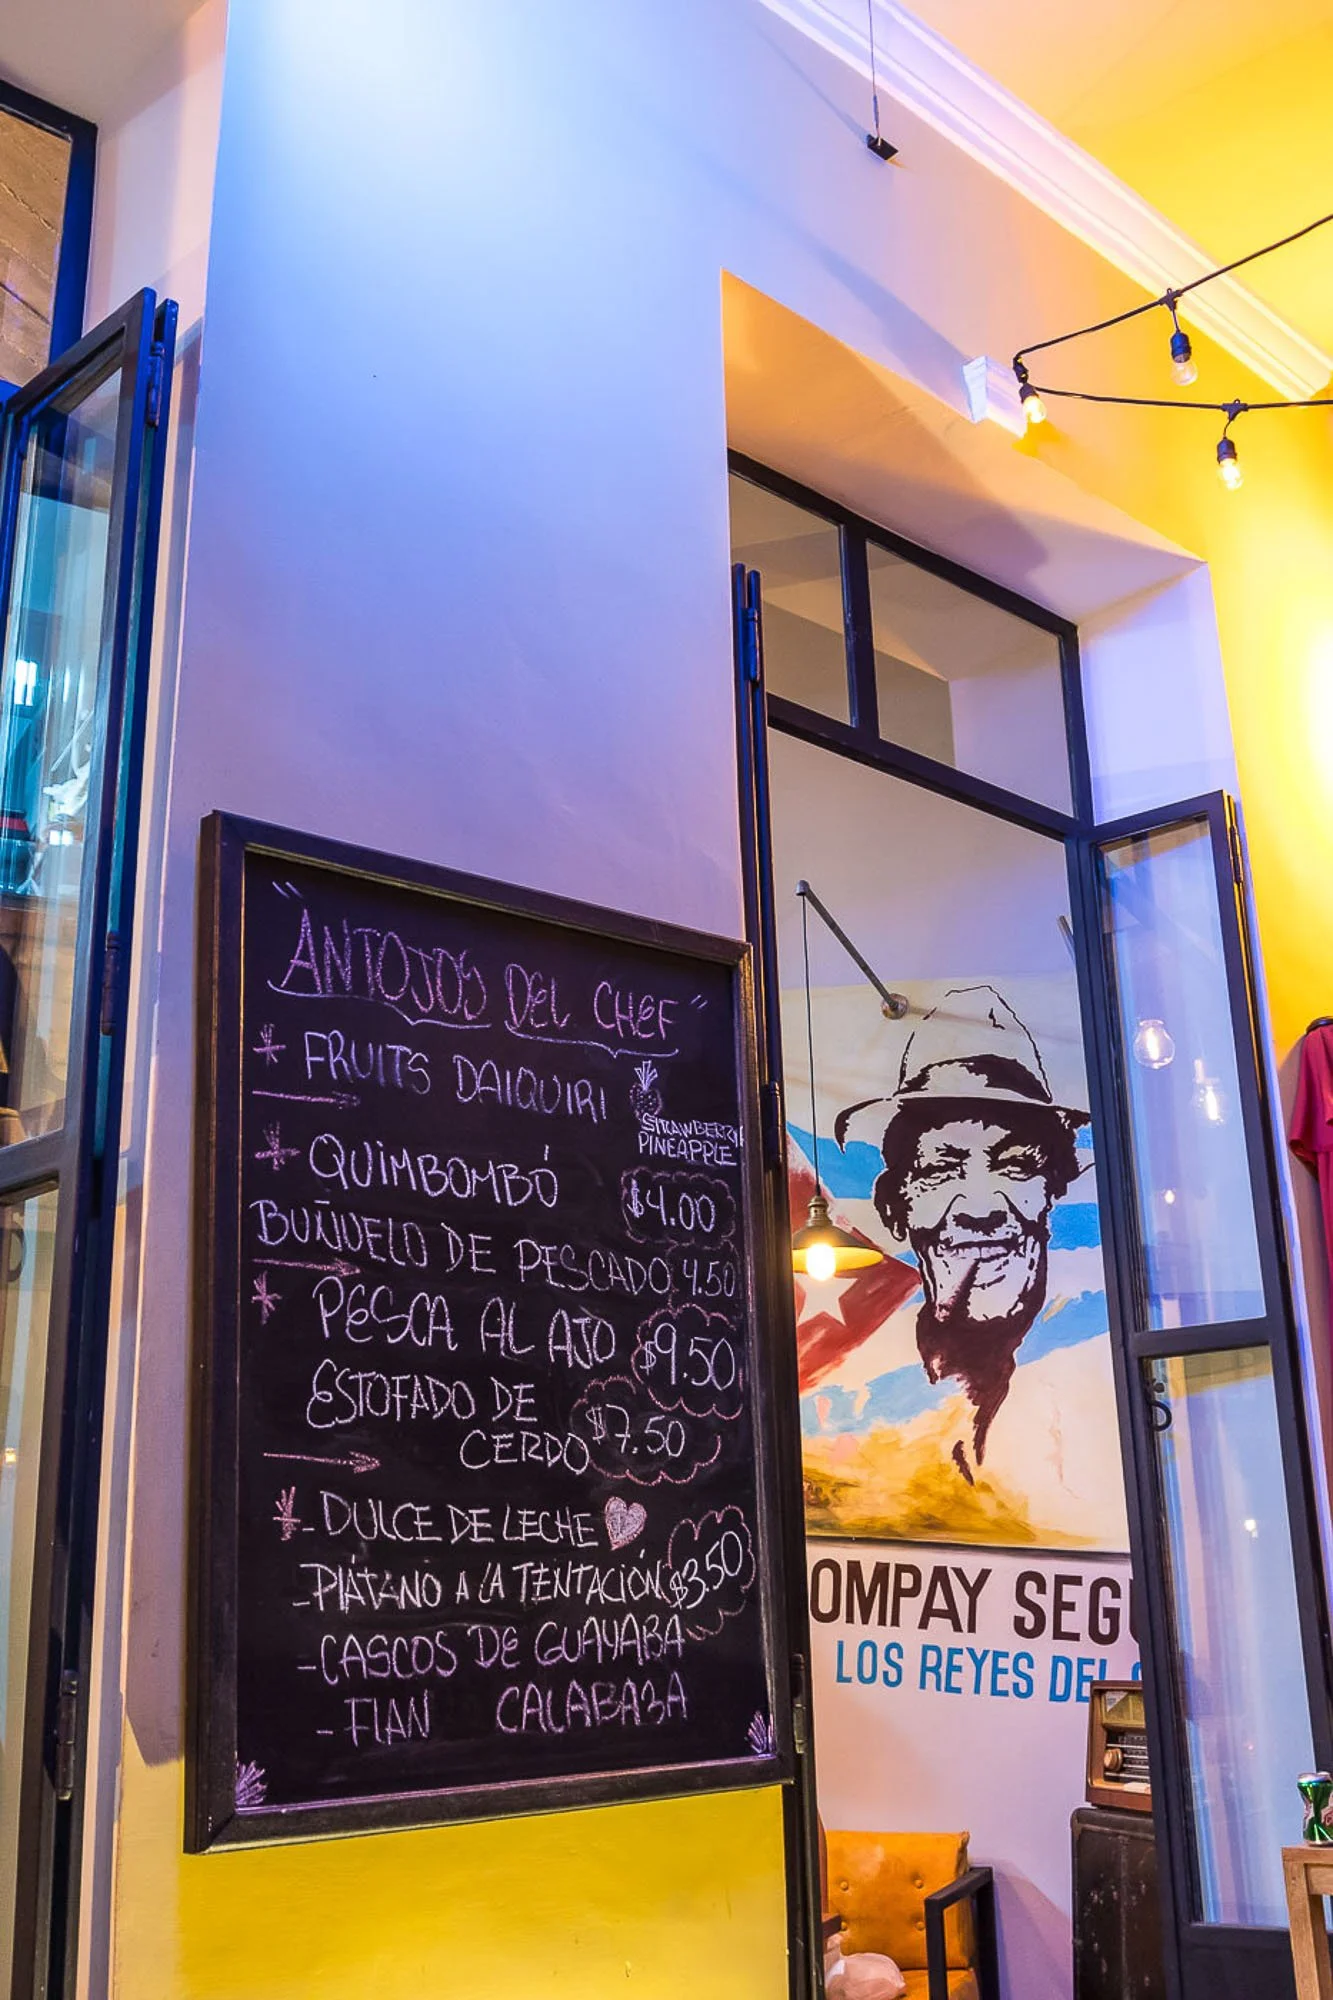 "ANTOJOS DEL CHEF"
* FRUITS DAIQUIRI
STRAWBERRY
PINEAPPLE
* QUIMBOMBÓ $4.00
BUÑUELO DE PESCADO 4.50
* PESCA AL AJO $9.50
ESTOFADO DE
CERDO $7.50
* - DULCE DE LECHE
- PLÁTANO A LA TENTACIÓN $3.50
- CASCOS DE GUAYABA
- FLAN CALABAZA
OMPAY SEGU
LOS REYES DEL